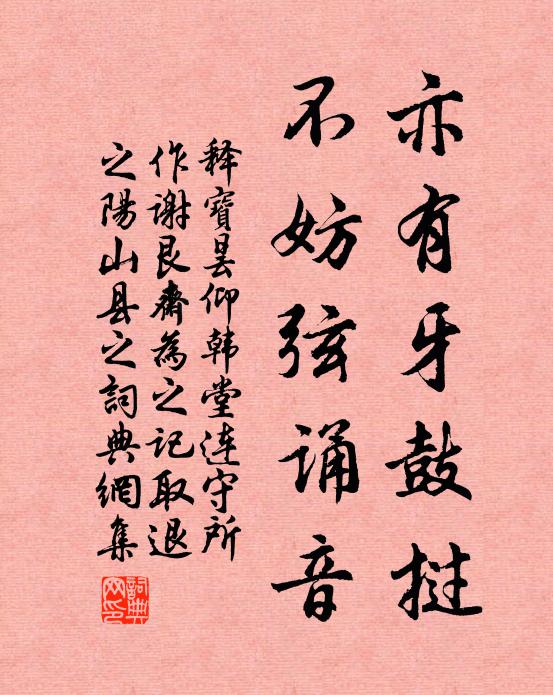 亦有牙鼓挝
不妨弦诵音
释寶昙仰韩堂连守所
作谢艮齋為之记取退
之陽山县之詞典網集
詞典网印